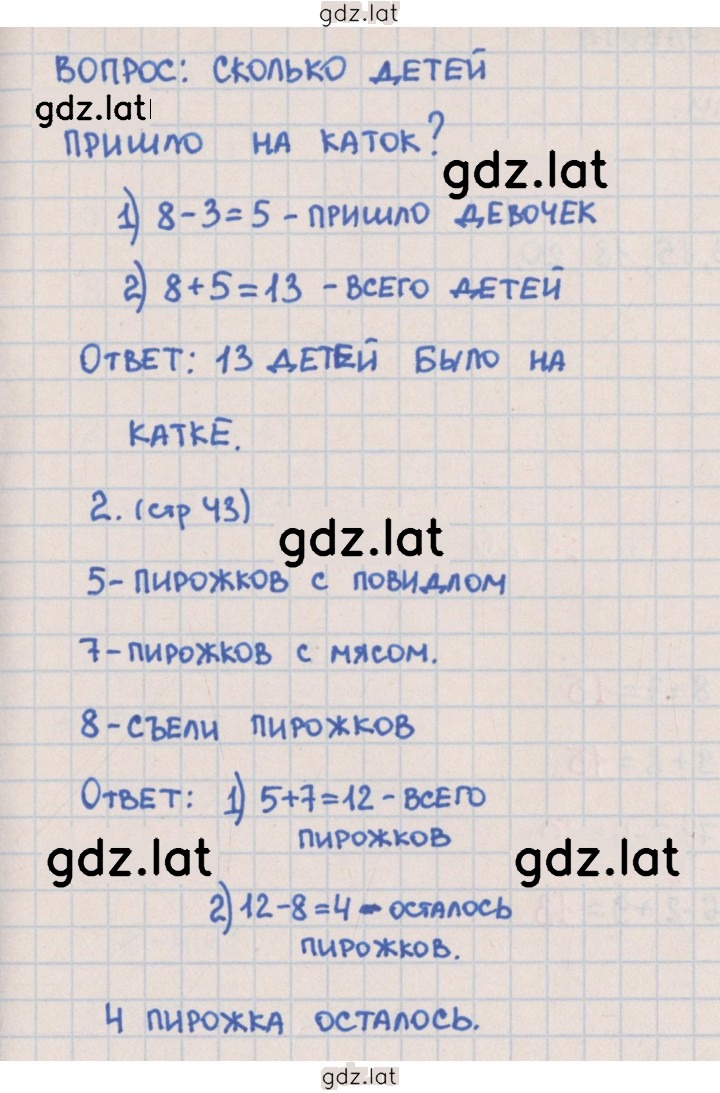 gdz.lat
ВОПРОС: СКОЛЬКО ДЕТЕЙ
gdz.lat
ПРИШЛО НА КАТОК?
gdz.lat
1) 8-3=5 - ПРИШЛО ДЕВОЧЕК
2) 8+5=13 - ВСЕГО ДЕТЕЙ
ОТВЕТ: 13 ДЕТЕЙ БЫЛО НА
КАТКЕ.
2. (стр 43)
gdz.lat
5- ПИРОЖКОВ С ПОВИДЛОМ
7-ПИРОЖКОВ С МЯСОМ.
8-СЪЕЛИ ПИРОЖКОВ
ОТВЕТ: 1) 5+7=12 - ВСЕГО
ПИРОЖКОВ
gdz.lat gdz.lat
2) 12-8=4 - ОСТАЛОСЬ
ПИРОЖКОВ.
4 ПИРОЖКА ОСТАЛОСЬ.
gdz.lat